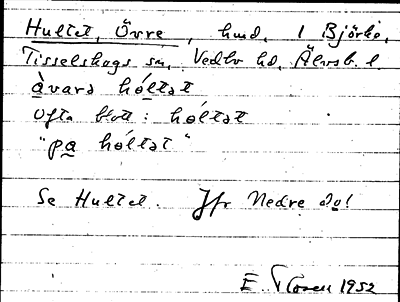 Hultet, Övre, hmd. i Björke,
Tisselskogs sn, Vedbo hd, Älvsb. l.
ə̀varə hóltət
Ofta blott: hóltət
"pa hóltət"
Se Hultet. Jfr Nedre do!
E. 1952